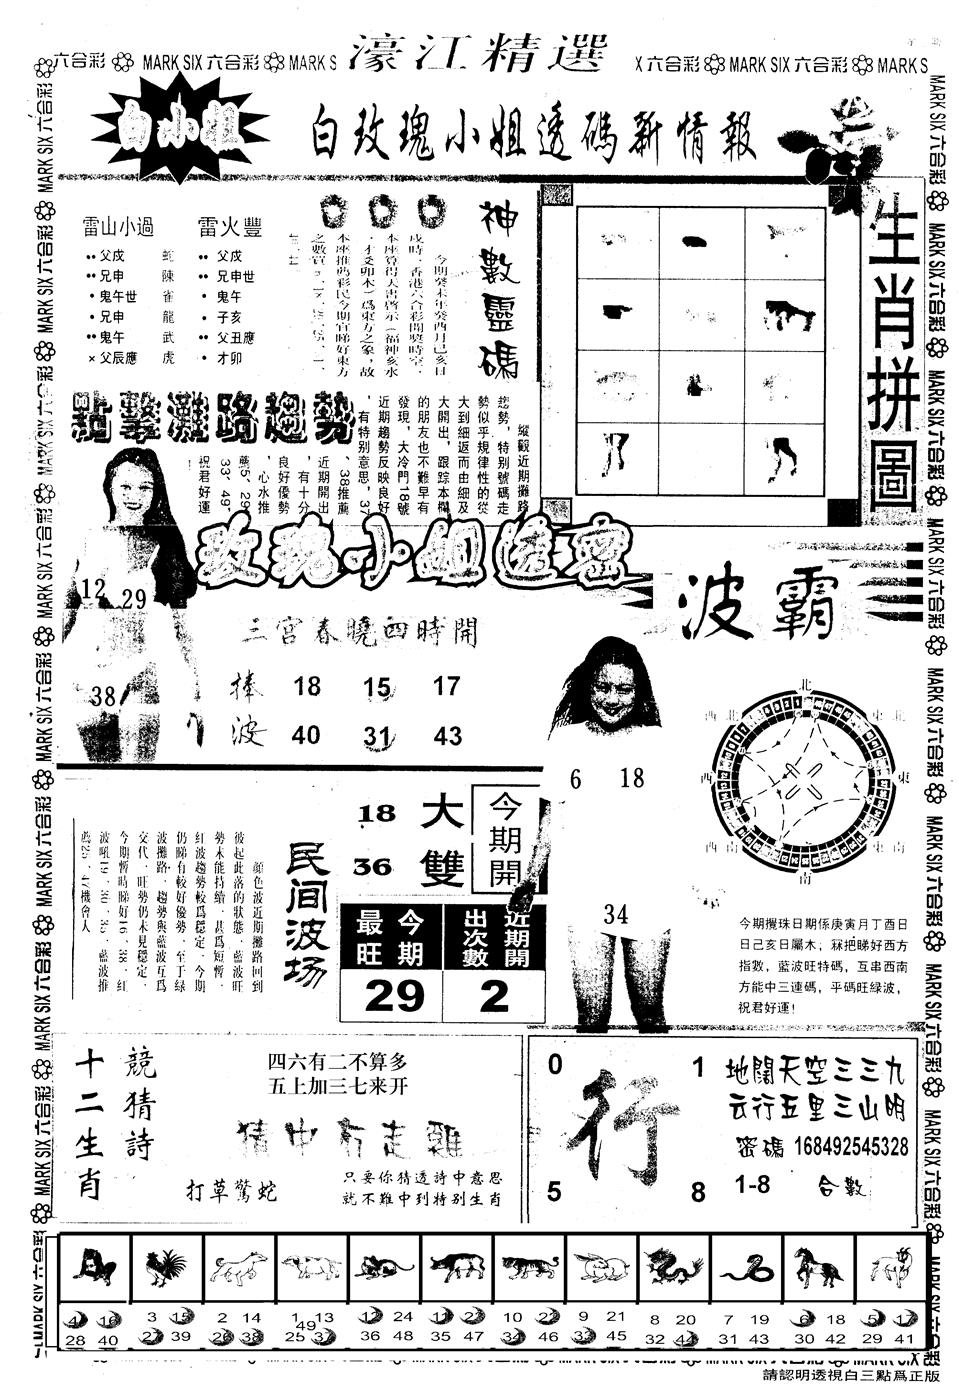 濠江精選
六合彩 MARK SIX 六合彩 MARK S
X 六合彩 MARK SIX 六合彩 MARK S
白小姐
白玫瑰小姐透碼新情報
雷山小過 雷火豐
父戌 蛇 父戌
兄申 陳 兄申世
鬼午世 雀 鬼午
兄申 龍 子亥
鬼午 武 父丑應
×父辰應 虎 才卯
神數靈碼
今期癸未年癸酉月己亥日
戌時，香港六合彩開獎時空，
本座算得天書啓示（福神亥水
，才爻卯木）爲東方之象，故
本座推薦彩民今期宜睇好東方
生肖拼圖
點擊灘路趨勢
縱觀近期攤路
悲勢，特别號碼走
勢似乎規律性的從
大到細返而由細及
大開出，跟踪本欄
的朋友也不難早有
發現，大冷門18號
近期趨勢反映良好
，有特别意思，37
、38推薦
近期開出
，有十分
良好優勢
，心水推
薦5、29、
33、49，
祝君好運
玫瑰小姐透密
12 29
38
三宮春曉四時開
捧 18 15 17
波 40 31 43
波霸
6 18
34
北
西北 東北
西 東
西南 東南
南
今期攪珠日期係庚寅月丁酉日
日己亥日屬木，冧把睇好西方
指數，藍波旺特碼，互串西南
方能中三連碼，平碼旺绿波，
祝君好運！
民间波场
顔色波近期攤路回到
彼起此落的狀態，藍波旺
勢未能持續，甚爲短暫，
红波趨勢較爲穩定，今期
仍睇有較好優勢，至于绿
波攤路，趨勢與藍波互爲
交代，旺勢仍未見穩定，
今期暫時睇好16、38，红
波吼19、30、35，藍波推
薦25、47機會人
18 大
36 雙
今期開
今期最旺
近期開出次數
29 2
十二生肖
競猜詩
四六有二不算多
五上加三七来开
猜中有走雞
打草驚蛇
只要你猜透詩中意思
就不難中到特别生肖
0 1
行
5 8
地闊天空三三九
云行五里三山明
密碼 168492545328
1-8 合數
4 16 3 15 2 14 1 13 12 24 11 23 10 22 9 21 8 20 7 19 6 18 5 17
49
28 40 27 39 26 38 25 37 36 48 35 47 34 46 33 45 32 44 31 43 30 42 29 41
請認明透視白三點爲正版